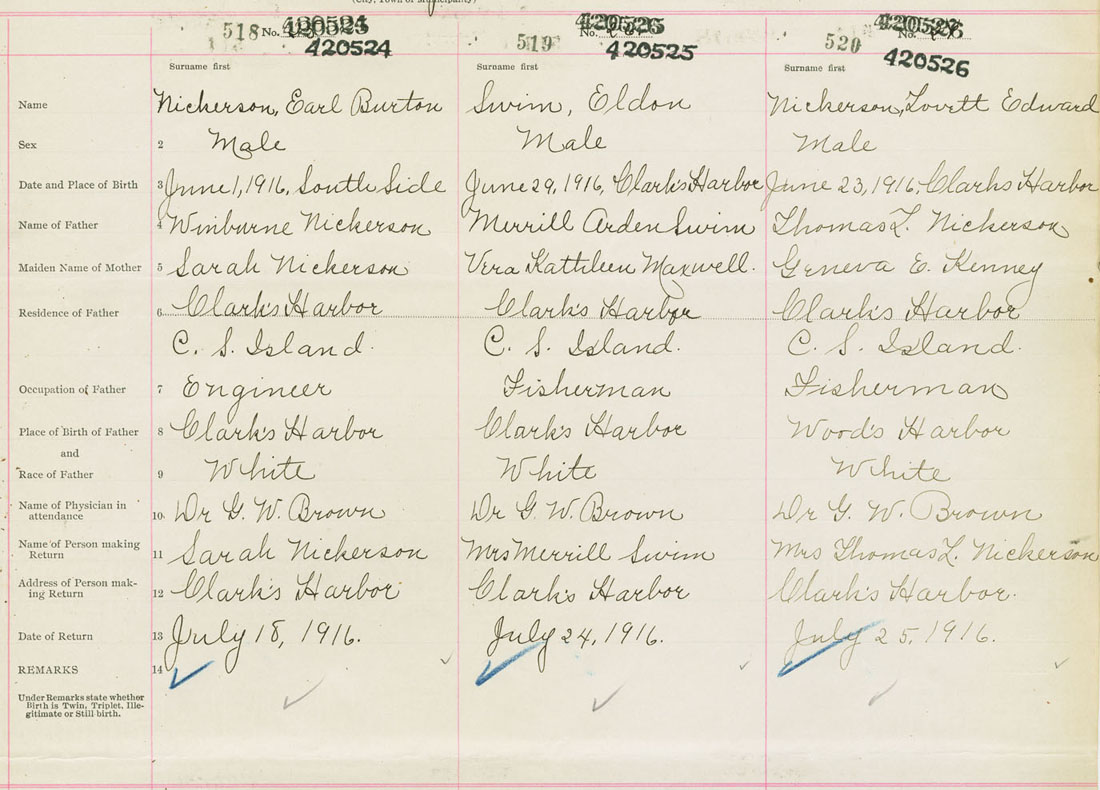 (City, Town or Municipality)
518 No. 420524
519 No. 420525
520 No. 420526
Surname first Surname first Surname first
Name Nickerson, Earl Burton Swim, Eldon Nickerson, Lovitt Edward
Sex 2 Male Male Male
Date and Place of Birth 3 June 1, 1916, South Side June 29, 1916, Clark's Harbor June 23, 1916, Clarks Harbor
Name of Father 4 Winburne Nickerson Merrill Arden Swim Thomas L. Nickerson
Maiden Name of Mother 5 Sarah Nickerson Vera Kathleen Maxwell. Geneva E. Kenney
Residence of Father 6 Clark's Harbor Clark's Harbor Clark's Harbor
C. S. Island. C. S. Island. C. S. Island.
Occupation of Father 7 Engineer Fisherman Fisherman
Place of Birth of Father 8 Clark's Harbor Clark's Harbor Wood's Harbor
and
Race of Father 9 White White White
Name of Physician in
attendance 10. Dr G. W. Brown Dr G. W. Brown Dr G. W. Brown
Name of Person making
Return 11 Sarah Nickerson Mrs Merrill Swim Mrs Thomas L. Nickerson
Address of Person mak-
ing Return 12 Clark's Harbor Clark's Harbor Clark's Harbor.
Date of Return 13 July 18, 1916. July 24, 1916. July 25, 1916.
REMARKS 14
Under Remarks state whether
Birth is Twin, Triplet, Ille-
gitimate or Still birth.